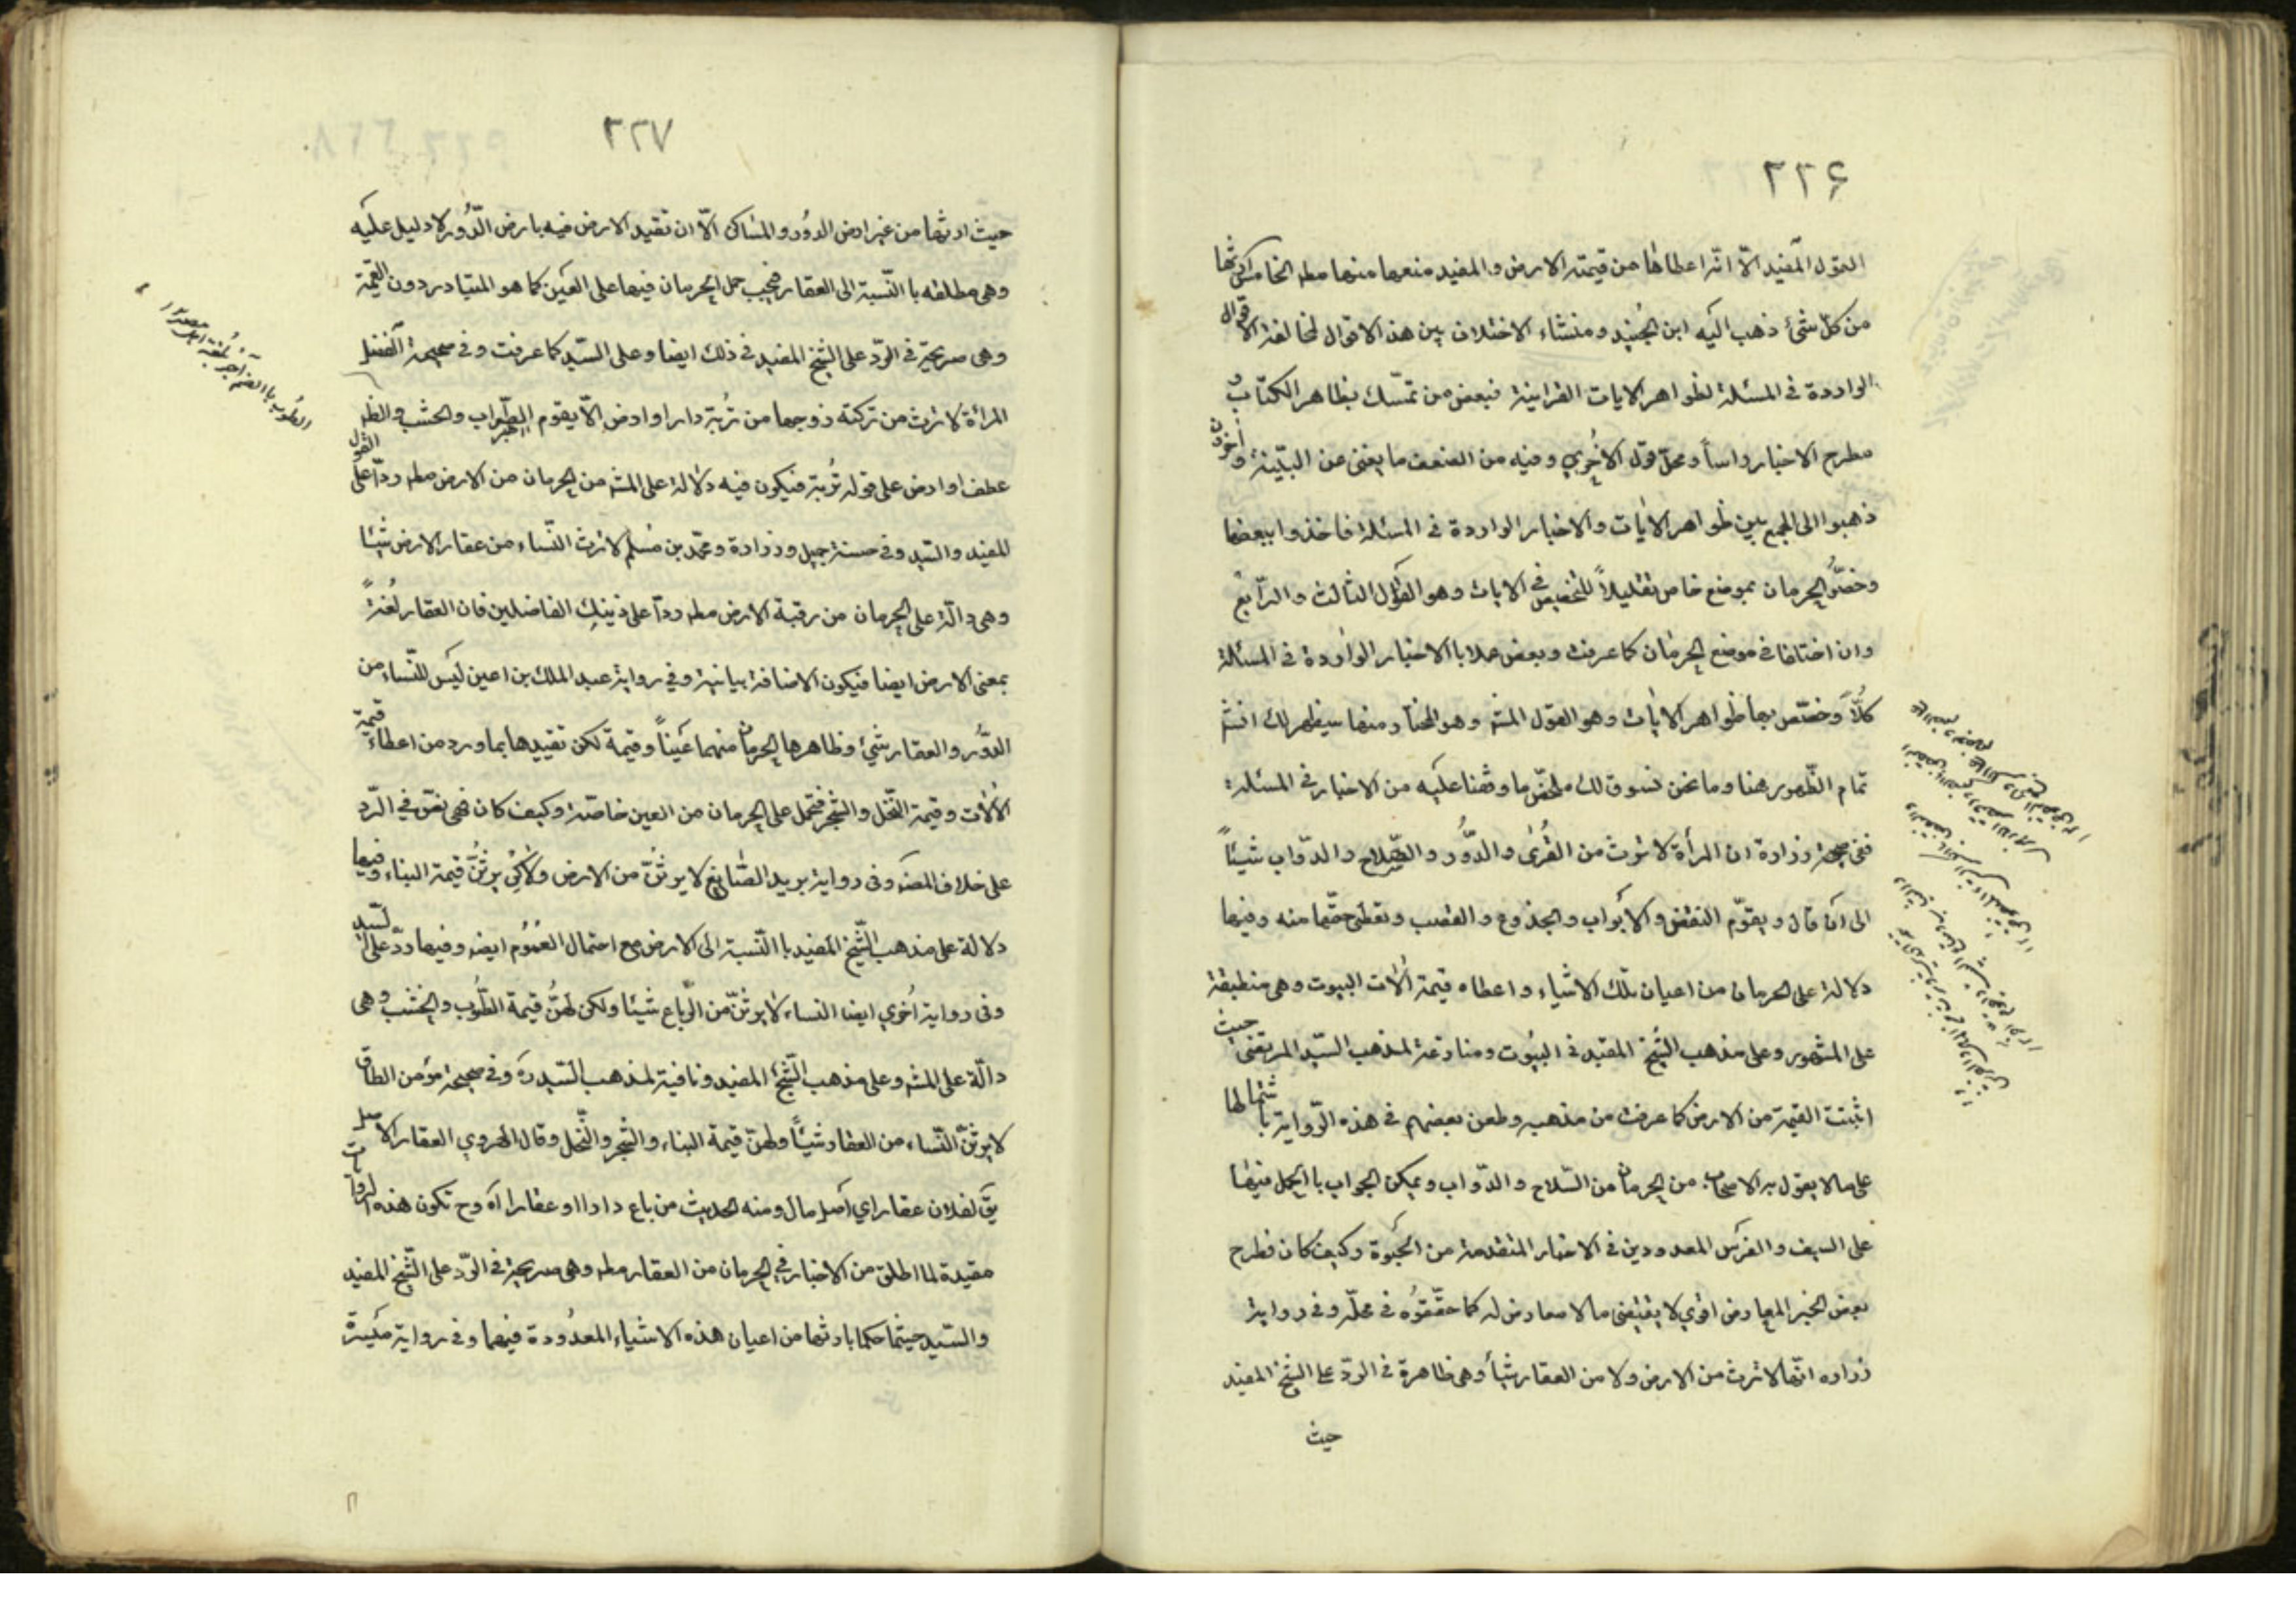 ٢٢۶
القول المفيد الّا انّه اعطاها من قيمته الارض والمفيد منعها منها مطه الخامس ارثها
من كلّ شئ ذهب اليه ابن الجُنيد ومنشاء الاختلاف بين هذه الاقوال مخالفة الاقوال
الواردة في المسئلة لظواهر الايات القرانية فبعض من تمسّك بظاهر الكتاب و
مطرح الاخبار راساً ومحلّ قول الاخري وفيه من الضعف ما يغنى عن البيّنة وآخرون
ذهبوا الى الجمع بين ظواهر الايات والاخبار الواردة في المسئلة فاخذوا ببعضها
وخصّوا الحرمان بموضع خاص تقليلاً للتخصيص في الايات وهو القول الثالث والرّابع
وان اختلفا في موضع الحرمان كما عرفت وبعض عملا باالاخبار الواردة في المسئلة
كلاً وخصّص بها ظواهر الايات وهو القول المشه وهو المختار ومنها سيظهر لك انشه
تمام الظّهور هنا وما نحن نسوق لك ملخّص ما وقفنا عليه من الاخبار في المسئلة
ففي صحيحة زرارة ان المرأة لا ترث من القُرٰى والدُّور والسّلاح والدوّاب شيئاً
الى ان قال ويقوّم النقض والابواب والجذوع والقصب وتعطى حقّها منه وفيها
دلالة على الحرمان من اعيان تلك الاشياء واعطاه قيمة الات البيوت وهى منطبقة
على المشهور وعلى مذهب الشّيخ المفيد في البيُوت ومنازعة لمذهب السّيد المرتضى حيث
اثبتت القيمة من الارض كما عرفت من مذهبه وطعن بعضهم في هذه الرّواية باشتمالها
على ما لا يقول به الاصحاب من الحرمان من السّلاح والدوّاب ويمكن الجواب باالحمل فيها
على السيف والفرس المعدودين في الاخبار المتقدمة من الحَبْوة وكيف كان فطرح
بعض الخبر المعارض اقوي لا يقتضى ما لا معارض له كما حقّقوُه في محلّه وفي رواية
زراره انّها لا ترث من الارض ولا من العقار شيأ وهى ظاهرة في الردّ على الشّيخ المفيد
حيث
٢٢٧
حيث ارثها من غير ارض الدوُر والمساكن الّا ان تقيد الارض فيه بارض الدُّور لا دليل عليه
وهى مطلقه باالنّسبة الى العقار فيجب حمل الحرمان فيها على العين كما هو المتبادر دون القيمة
وهى صريحة في الردّ على الشّيخ المفيد في ذلك ايضا وعلى السّيد كما عرفت وفي صحيحة الفضل
المرأة لا ترث من تركته زوجها من تُربة دار او ارض الّا يقوم الطّوب والخشب والظه
عطف او ارض على قوله تُربة فيكون فيه دلالة على المشه من الحرمان من الارض مطه وردّاً على القول
للمفيد والسّيد وفي حسنة جميل وزرارة ومحمّد بن مُسلم لا ترث النّساء من عقار الارض شيئا
وهى دالّة على الحرمان من رقبة الارض مطه ردّاً على ذينك الفاضلين فان العقار لُغةً
بمعنى الارض ايضا فيكون الاضافة بيانية وفي رواية عبد الملك بن اعين ليس للنّساء من
الدوُر والعقار شئ وظاهرها الحرمان منهما عيناً وقيمة لكن تقييدها بما ورد من اعطاء قيمة
الالات وقيمة النّخل والشّجر فتحمل على الحرمان من العين خاصّة وكيف كان فهى نصّ في الرّد
على خلاف المصنّه وفي رواية بريد الصّايغ لا يورثنّ من الارض ولاكن يرثنّ قيمة البناء وفيها
دلالة على مذهب الشّيخ المفيد باالنّسبة الى الارض مع احتمال العمُوم ايضه وفيها ردّ على السّيد
وفي رواية اُخري ايضا النساء لا يرثنّ من الرّباع شيئا ولكن لهنّ قيمة الطّوب والخشب وهى
دالّة على المشه وعلى مذهب الشّيخ المفيد ونافية لمذهب السّيد ره وفي صحيحة مؤمن الطاق
لا يرثنّ النّساء من العقار شيئاً ولهنّ قيمة البناء والشّجر والنّخل وقال الهروي العقار الاصل
يقّ لفلان عقار اي اصل مال ومنه الحديث من باع دارا او عقارا آه وح تكون هذه الروايات
مقيدة لما اطلق من الاخبار في الحرمان من العقار مطه وهى صريحة في الردّ على الشّيخ المفيد
والسّيد حيثما حكما بارثها من اعيان هذه الاشياء المعدُودة فيهما وفي رواية ميسرة
الطُوب باالضم آجرّ بلُغة اهل مصر